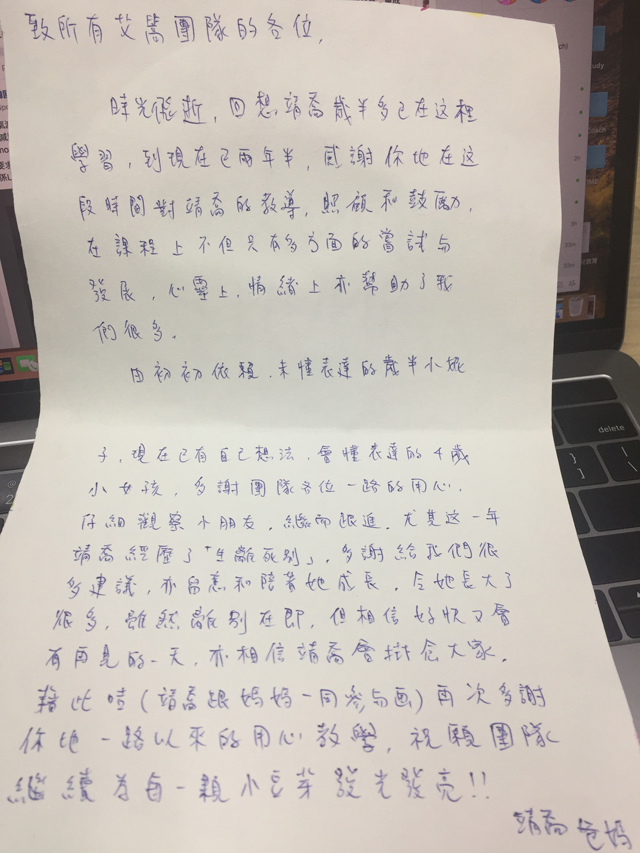 致所有艾嵩團隊的各位,
時光飛逝, 回想靖喬歲半多已在這裡
學習, 到現在已兩年半, 感謝你地在这
段時間對靖喬的教導, 照顧和鼓勵,
在課程上不但只有多方面的嘗試与
發展, 心靈上, 情緒上亦幫助了我
們很多。
由初初依賴、未懂表達的歲半小妮
子, 現在已有自己想法, 會懂表達的4歲
小女孩, 多謝團隊各位一路的用心,
仔細觀察小朋友, 繼而跟進, 尤其这一年
靖喬經歷了「生離死別」, 多謝給我們很
多建議, 亦留意和陪著她成長, 令她長大了
很多, 雖然離別在即, 但相信好快又會
有再見的一天, 亦相信靖喬會掛念大家。
藉此咭(靖喬跟媽媽一同參与画)再次多謝
你地一路以來的用心教學, 祝願團隊
繼續為每一顆小豆芽發光發亮!!
靖喬爸媽
delete